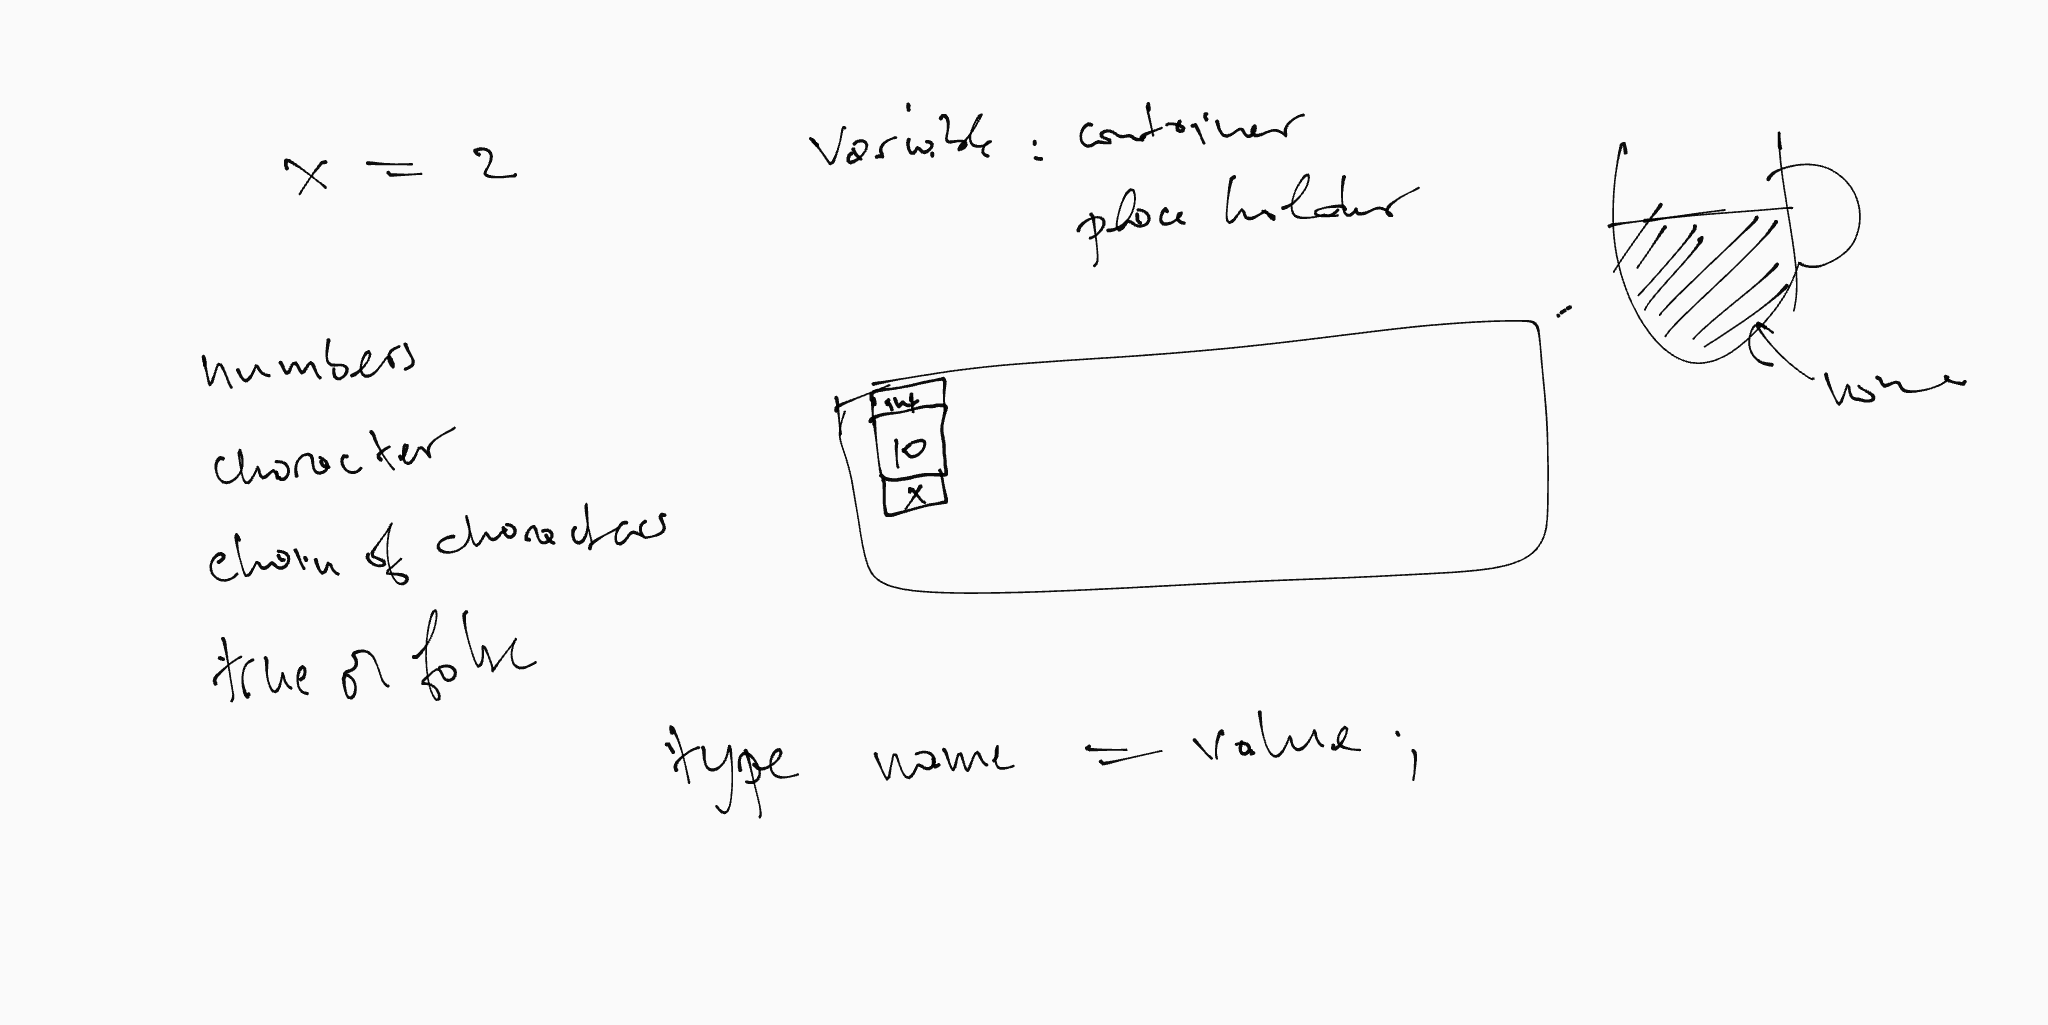 x = 2
variable : container
place holder
name
numbers
character
chain of characters
true or false
int
10
x
type name = value ;